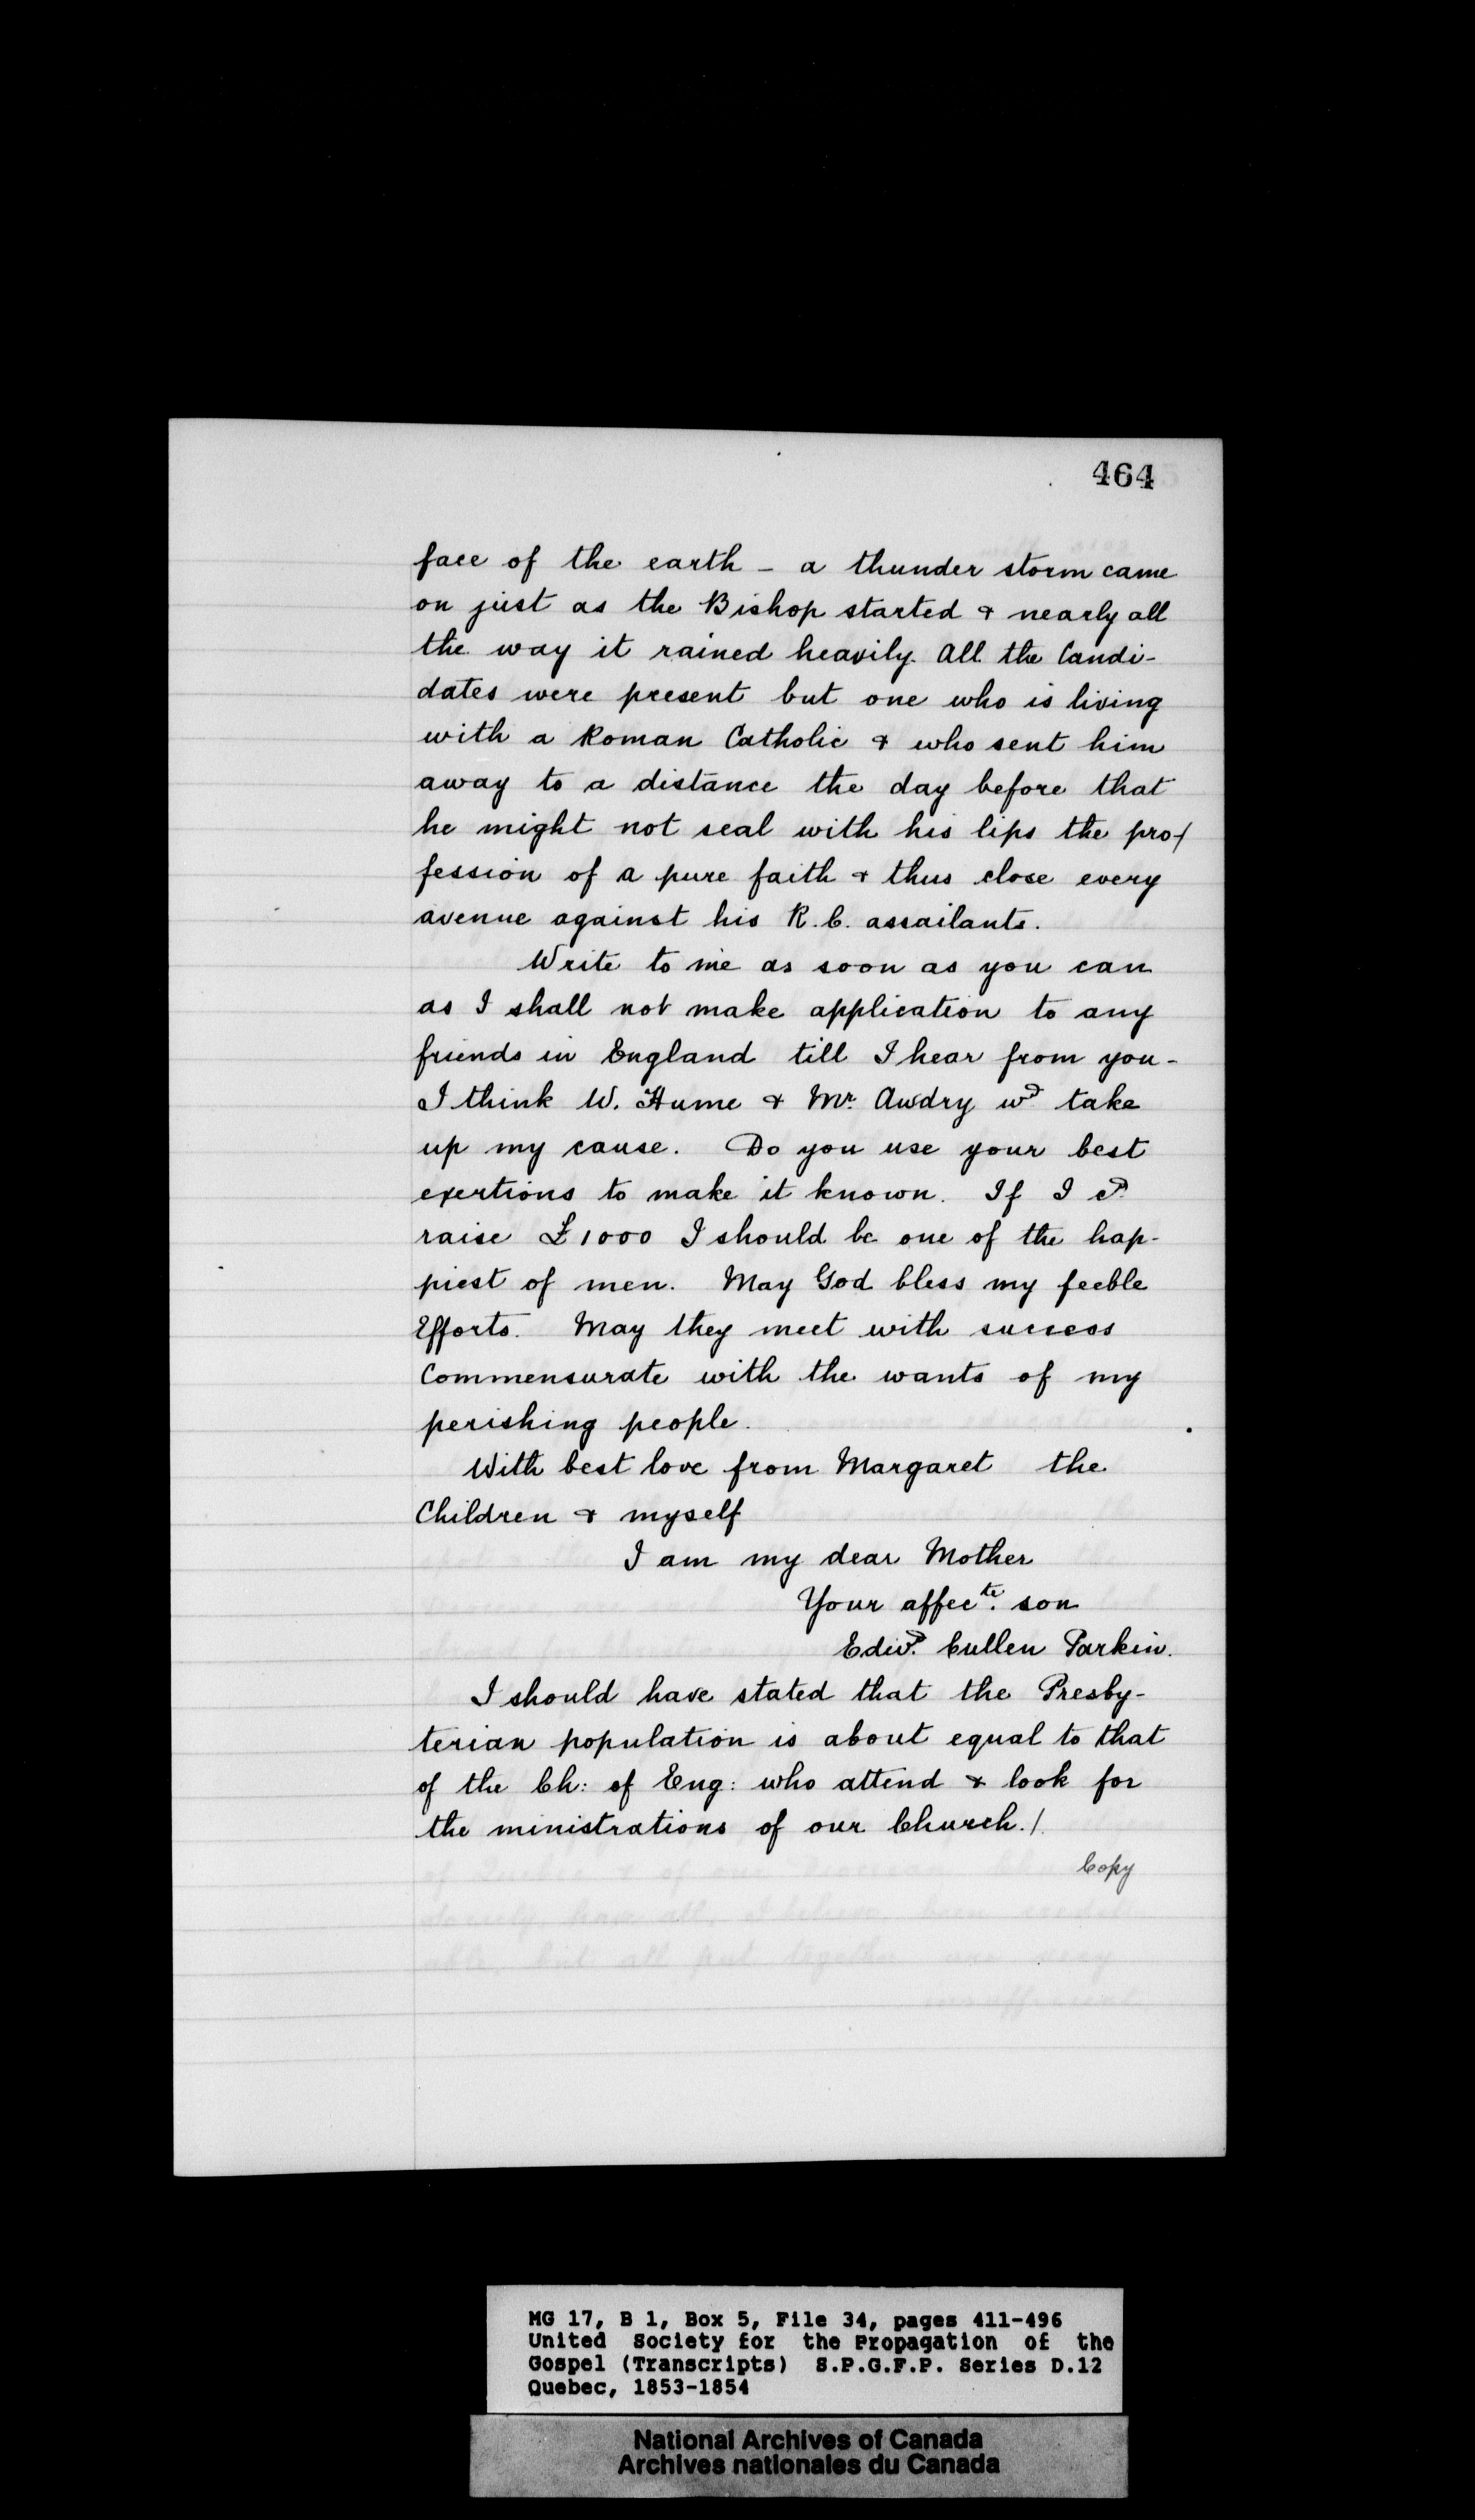 464
face of the earth - a thunder storm came
on just as the Bishop started & nearly all
the way it rained heavily. All the Candi-
dates were present but one who is living
with a Roman Catholic & who sent him
away to a distance the day before that
he might not seal with his lips the pro/
fession of a pure faith & thus close every
avenue against his R.C. assailants.
Write to me as soon as you can
as I shall not make application to any
friends in England till I hear from you -
I think W. Hume & Mr. Awdry wd take
up my cause. Do you use your best
exertions to make it known. If I cd.
raise £1000 I should be one of the hap-
piest of men. May God bless my feeble
Efforts. May they meet with success
Commensurate with the wants of my
perishing people.
With best love from Margaret the
Children & myself
I am my dear Mother
Your affecte. son
Edwd. Cullen Parkin.
I should have stated that the Presby-
terian population is about equal to that
of the Ch: of Eng: who attend & look for
the ministrations of our Church./
Copy
MG 17, B 1, Box 5, File 34, pages 411-496
United Society for the Propagation of the
Gospel (Transcripts) S.P.G.F.P. Series D.12
Quebec, 1853-1854
National Archives of Canada
Archives nationales du Canada